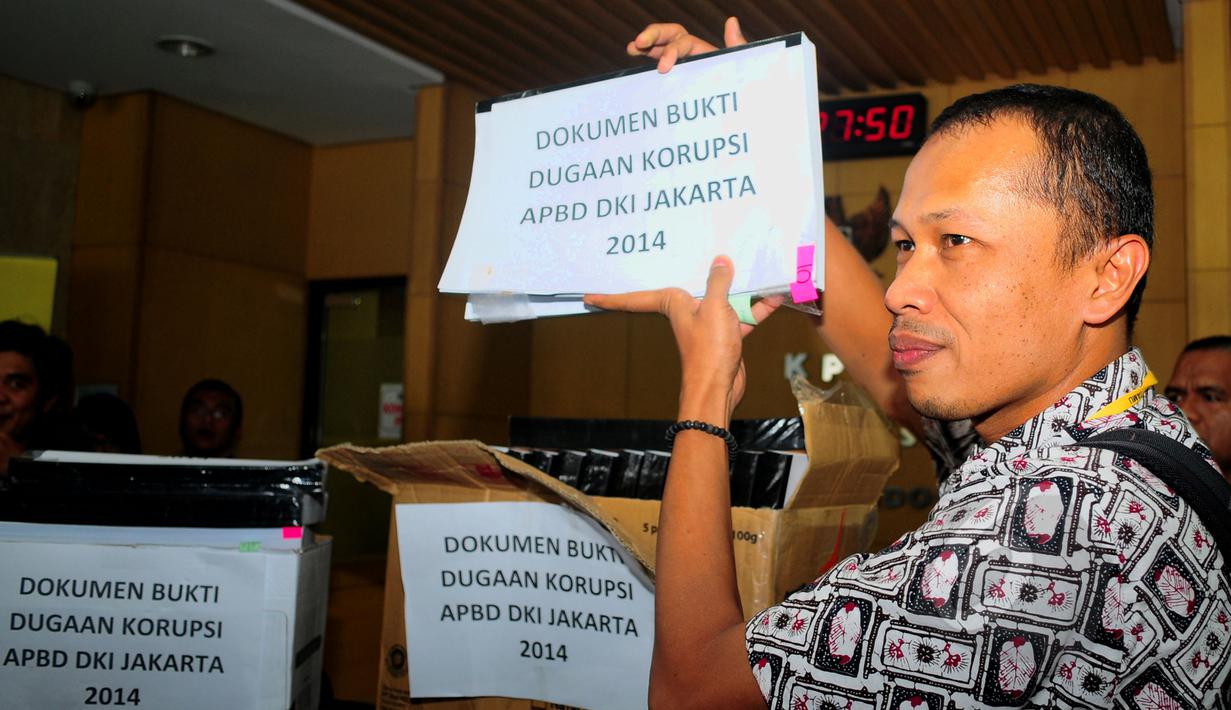 DOKUMEN BUKTI
DUGAAN KORUPSI
APBD DKI JAKARTA
2014
7:50
K P
5 p
100g
DOKUMEN BUKTI
DUGAAN KORUPSI
APBD DKI JAKARTA
2014
DOKUMEN BUKTI
DUGAAN KORUPSI
APBD DKI JAKARTA
2014